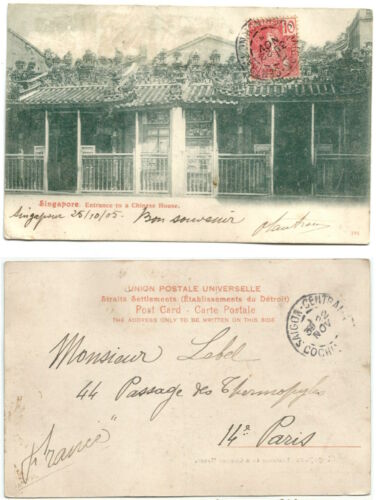 10
Singapore. Entrance to a Chinese House.
Singapore 25/10/05. Bon souvenir
UNION POSTALE UNIVERSELLE
Straits Settlements (Établissements du Détroit)
Post Card - Carte Postale
THE ADDRESS ONLY TO BE WRITTEN ON THIS SIDE
SAIGON-CENTRAL
22
NOV
COCHIN
Monsieur Label
44 Passage des Thermopyles
14e Paris
France